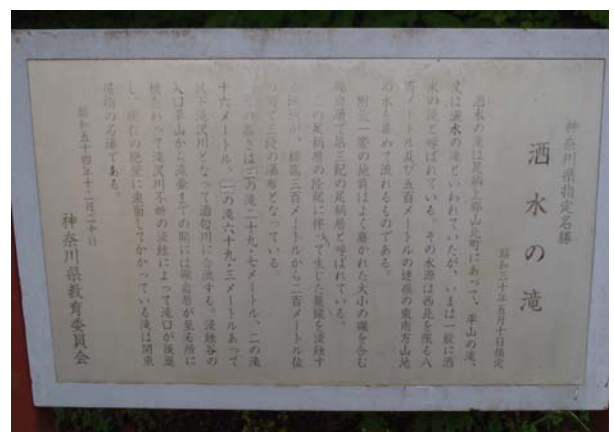 神奈川県指定名勝
洒水の滝
年五月十日指定
洒水の滝は足柄上郡山北町にあって、平山の滝、
又は 水の滝といわれていたが、いまは一般に洒
水の滝と呼ばれている。その水源は西北を限る八
百メートル及び五百メートルの連嶺の東南方山地
の水を集めて流れるものである。
附近一帯の地質はよく磨かれた大小の礫を含む
礫岩層で第三紀の足柄層と呼ばれている。
この足柄層の隆起に伴って生じた裂罅を浸蝕す
、標高三百メートルから二百メートル位
の所で三段の瀑布となっている。
の高さは の滝二十九・七メートル、二の滝
十六メートル、 の滝六十九・三メートルあって
以下滝沢川となって酒匂川に合流する。浸蝕谷の
入口平山から滝壷までの間には礫岩層が至る所に
横たわって滝沢川不断の浸蝕によって滝口が後退
し、 の絶壁に かかっている滝は関東
屈指の名瀑である。
昭和五十四年十二月二十日
神奈川県教育委員会